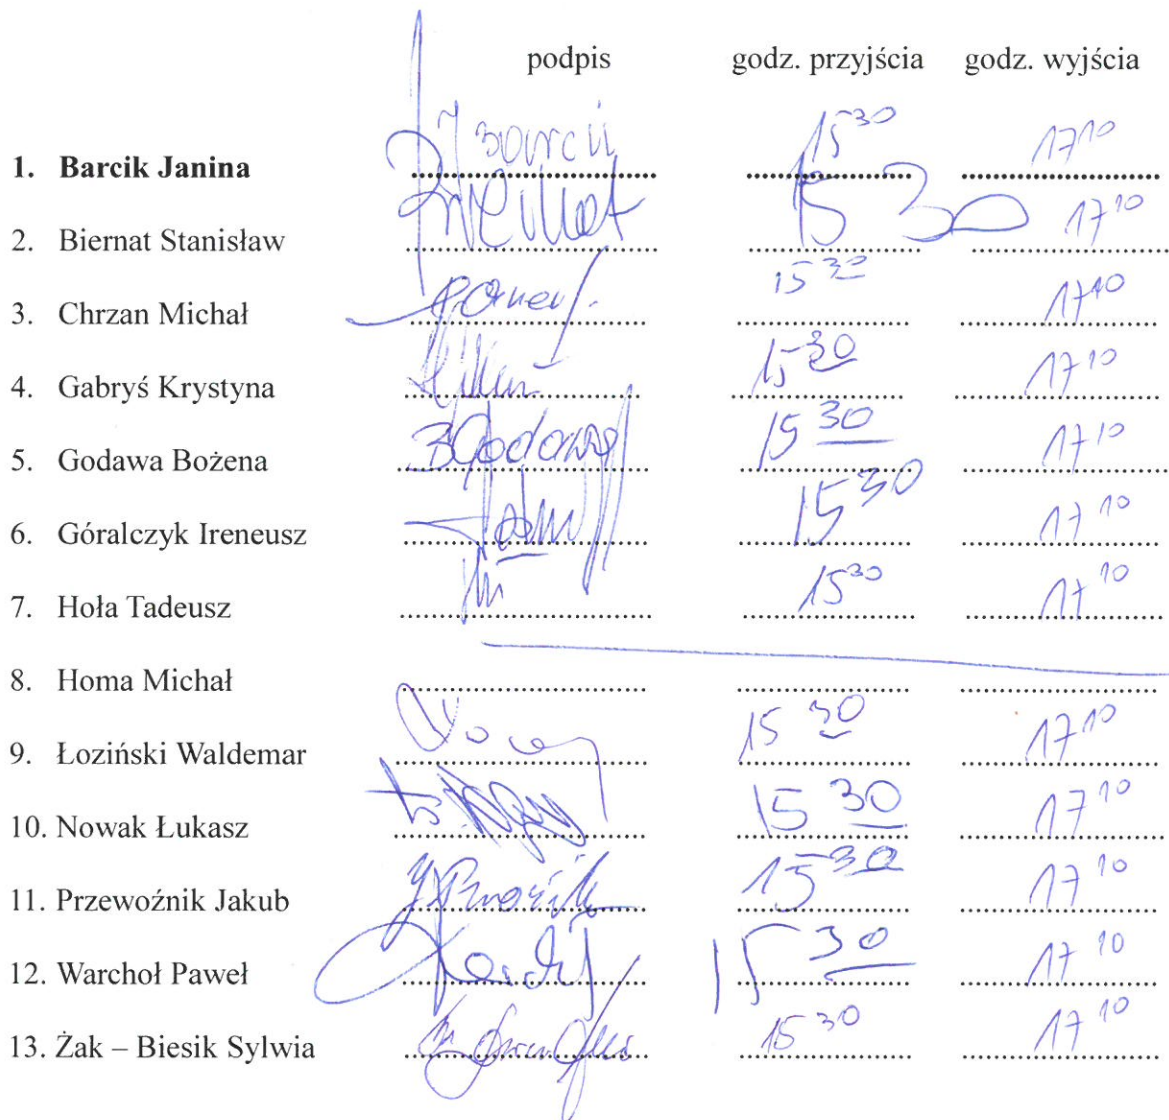 podpis godz. przyjścia godz. wyjścia
1. Barcik Janina 15 30 17 10
2. Biernat Stanisław Biernat 15 30 17 10
3. Chrzan Michał 15 30 17 10
4. Gabryś Krystyna 15 30 17 10
5. Godawa Bożena BGodawa 15 30 17 10
6. Góralczyk Ireneusz 15 30 17 10
7. Hoła Tadeusz 15 30 17 10
8. Homa Michał
9. Łoziński Waldemar 15 30 17 10
10. Nowak Łukasz 15 30 17 10
11. Przewoźnik Jakub 15 30 17 10
12. Warchoł Paweł 15 30 17 10
13. Żak – Biesik Sylwia 15 30 17 10